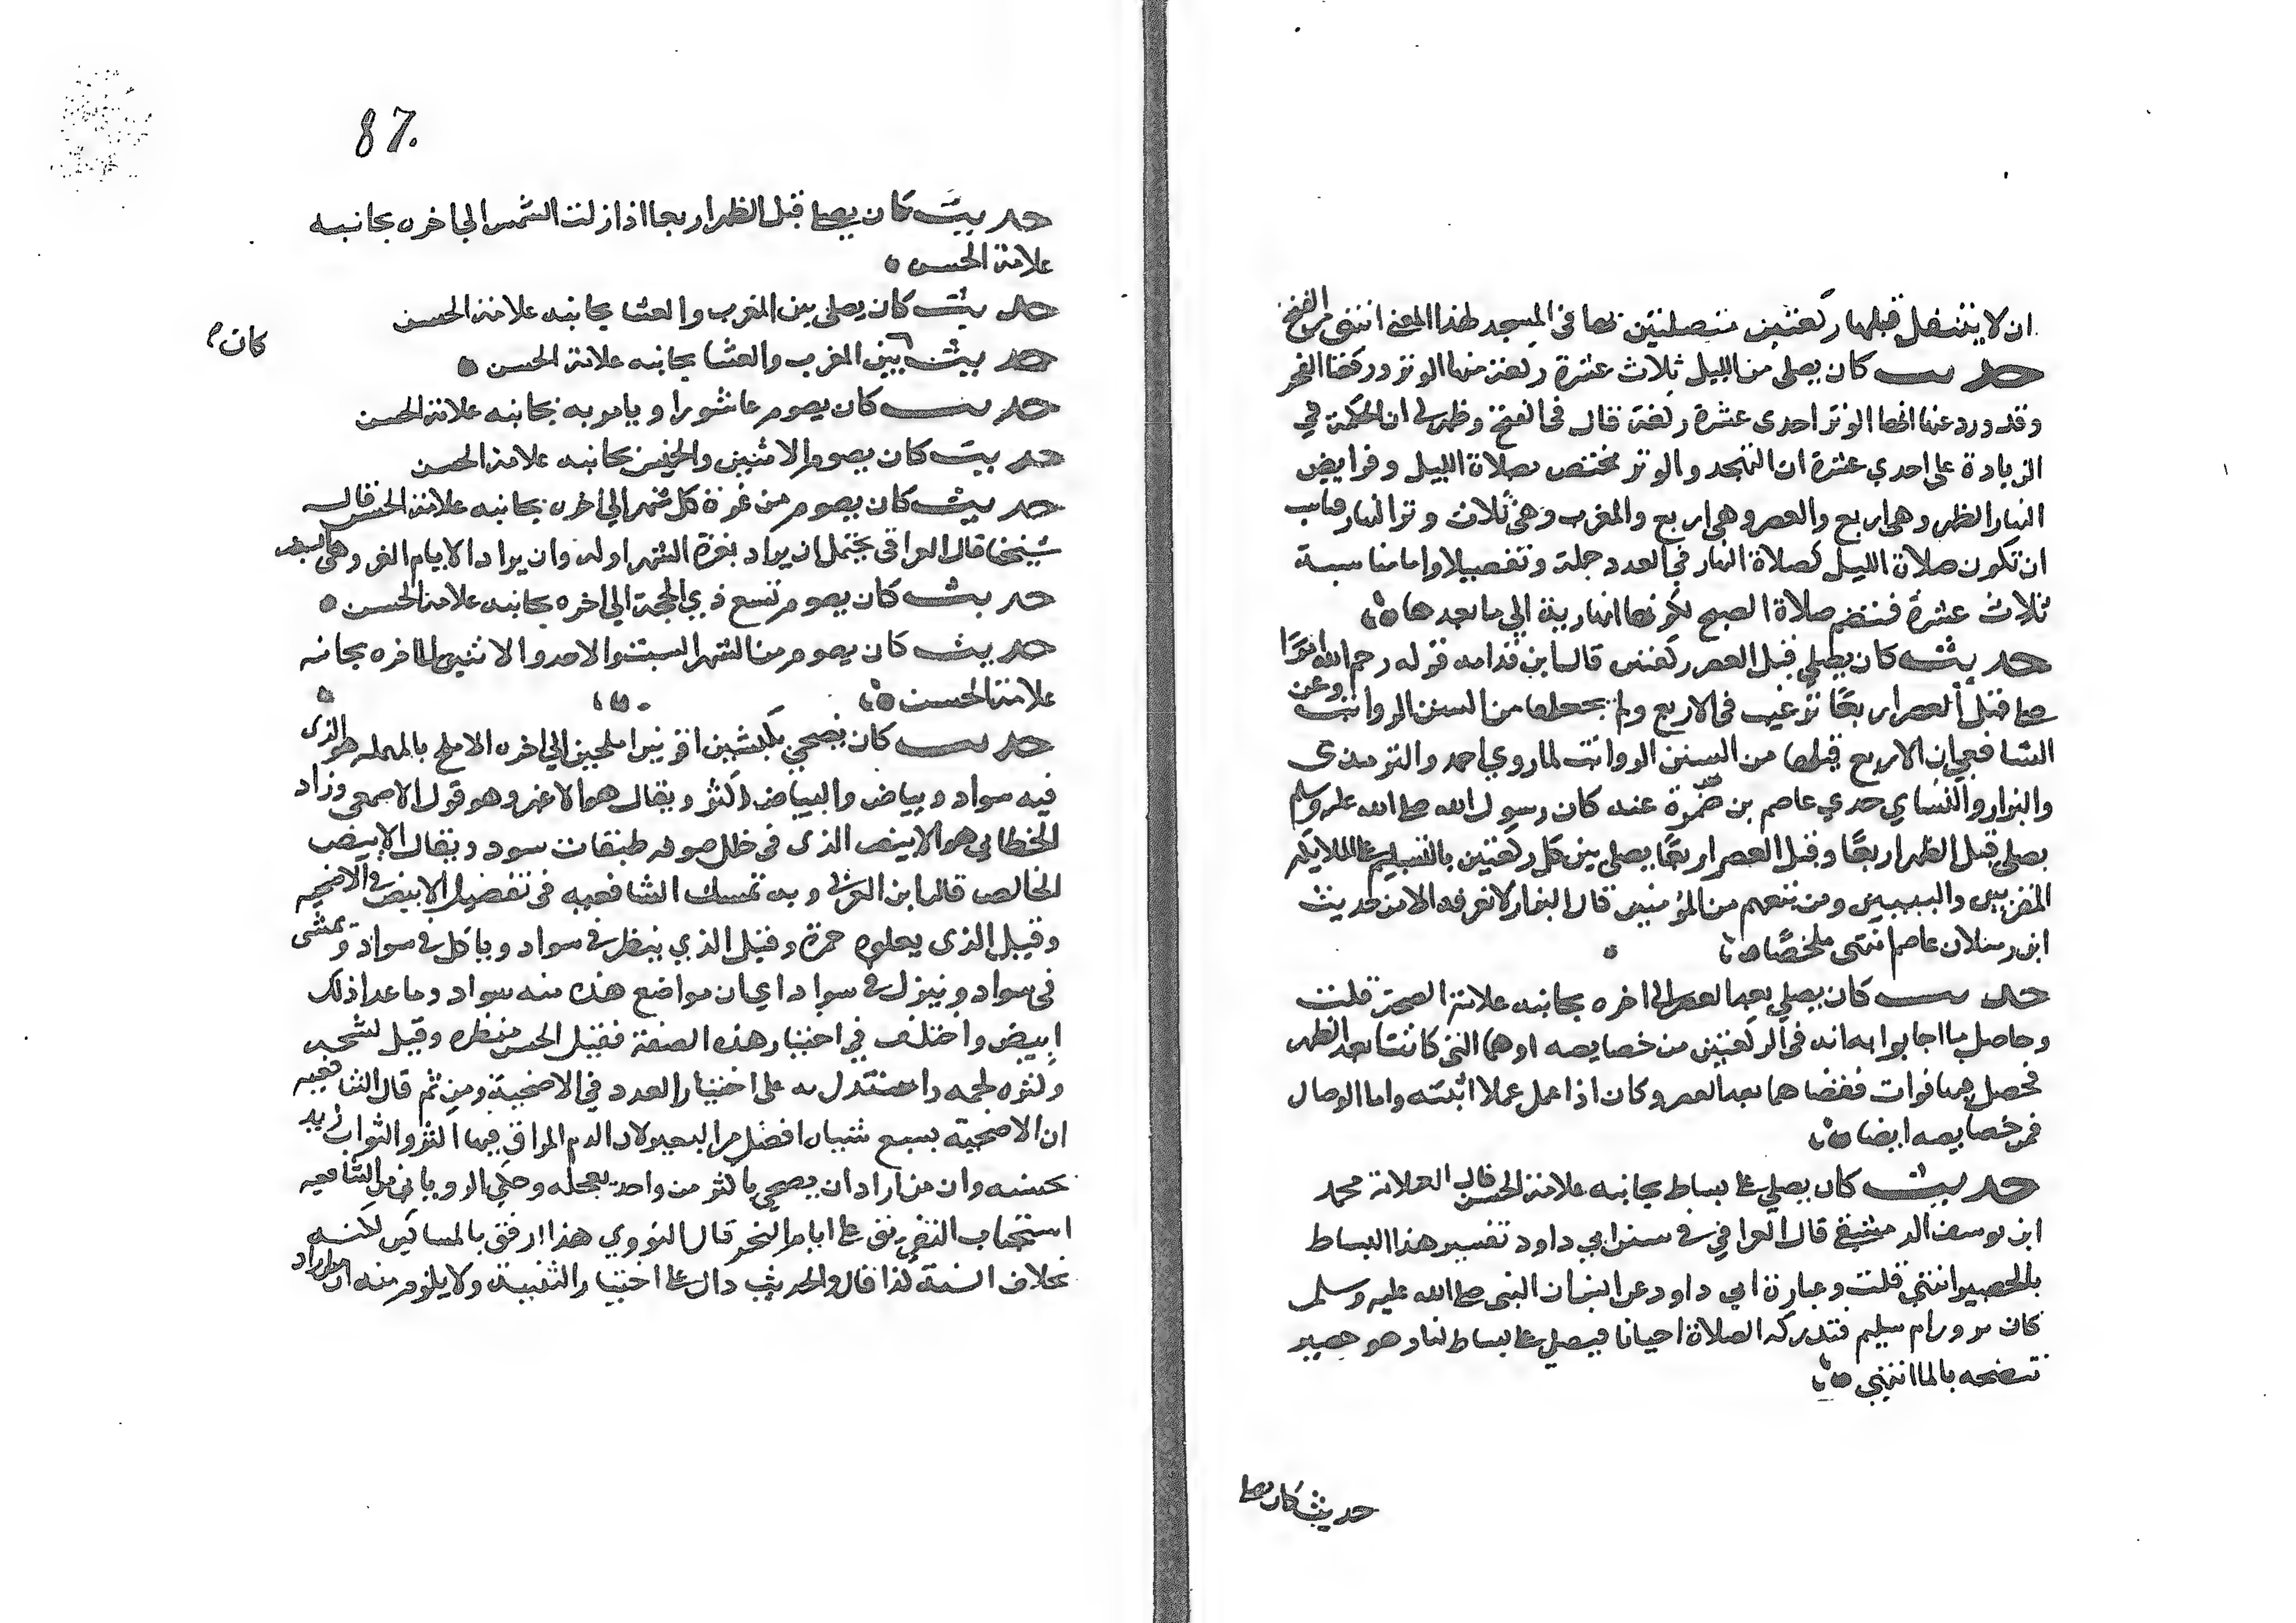 ان لا يتنفل قبلها ركعتين متصلتين بها في المسجد لهذا المعنى انتهى من الفتح
حديث كان يصلي من الليل ثلاث عشرة ركعة منها الوتر وركعتا الفجر
وقد ورد عنها انها الوتر احدى عشرة ركعة قال في الفتح وظهر لي ان الحكمة في
الزيادة على احدي عشرة ان التهجد والوتر مختص بصلاة الليل وفرايض
النهار الظهر وهي اربع والعصر وهي اربع والمغرب وهي ثلاث وتر النهار فناسب
ان تكون صلاة الليل كصلاة النهار في العدد جملة وتفصيلا واما مناسبة
ثلاث عشرة فتضم صلاة الصبح لكونها نهارية الي ما بعدها
حديث كان يصلي قبل العصر ركعتين قال ابن قدامه قوله رحم الله امرًا
صلى قبل العصر اربعًا ترغيب في الاربع ولم يجعلها من السنن الرواتب وعن
الشافعي ان الاربع قبلها من السنن الرواتب لما روي احمد والترمذى
والبزار والنساي حدي عاصم بن ضمرة عنه كان رسول الله صلى الله عليه وسلم
يصلي قبل الظهر اربعًا وقبل العصر اربعًا يصلى بين كل ركعتين بالتسليم على الملايكه
المقربين والنبيين ومن تبعهم من المؤمنين قال البزار لا نعرفه الا من حديث
ابن رسلان عاصم انتهى ملخصًا
حديث كان يصلي بعد العصر الي اخره بجانبه علامة الصحة قلت
وحاصل ما اجابوا به انه في الركعتين من خصايصه او هما التي كانتا بعد الظهر
فحصل بهما فوات فقضاهما بعد العصر وكان اذا عمل عملا اثبته واما الوصال
فمن خصايصه ايضا
حديث كان يصلي على بساط بجانبه علامة الحسن قال العلامة محمد
ابن يوسف الدمشقي قال العراقي في سنن ابي داود تفسير هذا البساط
بالحصير انتهي قلت وعبارة ابي داود عن انس ان النبي صلى الله عليه وسلم
كان يزور ام سليم فتدركه الصلاة احيانا فيصلي على بساط لنا وهو حصير
تنضحه بالماء انتهي
حديث كان يصلي
87.
حديث كان يصلي قبل الظهر اربعا اذا زالت الشمس الي اخره بجانبه
علامة الحسن
حديث كان يصلى بين المغرب والعشا بجانبه علامة الحسن
حديث بين المغرب والعشا بجانبه علامة الحسن
كان
حديث كان يصوم عاشورا ويامر به بجانبه علامة الحسن
حديث كان يصوم الاثنين والخميس بجانبه علامة الحسن
حديث كان يصوم من غرة كل شهر الي اخره بجانبه علامة الحسن قال
شيخنا قال العراقي يحتمل ان يراد بغرة الشهر اوله وان يراد الايام الغر وهي البيض
حديث كان يصوم تسع ذي الحجة الي اخره بجانبه علامة الحسن
حديث كان يصوم من الشهر السبت والاحد والاثنين الى اخره بجانبه
علامة الحسن
حديث كان يضحي بكبشين اقرنين املحين الي اخره الاملح بالمهمله هو الذى
فيه سواد وبياض والبياض اكثر ويقال هو الاغبر وهو قول الاصمعي وزاد
الخطابي هو الابيض الذى في خلل صوفه طبقات سود ويقال الابيض
الخالص قاله ابن العربي وبه تمسك الشافعيه في تفضيل الابيض في الاضحيه
وقيل الذى يعلوه حمرة وقيل الذي ينظر في سواد وياكل في سواد ويمشى
في سواد وينزل في سواد اي ان مواضع هذه منه سواد وما عدا ذلك
ابيض واختلف في اختيار هذه الصفة فقيل الحسن منظره وقيل لشحمه
وكثره لحمه واستدل به على اختيار العدد في الاضحية ومن ثم قال الشافعيه
ان الاضحية بسبع شياه افضل من البعير لان الدم المراق فيها اكثر والثواب يزيد
بحسبه وان من اراد ان يضحي باكثر من واحد يعجله وحكي الروياني من الشافعيه
استحباب التفريق على ايام النحر قال النووي هذا ارفق بالمساكين لكنه
بخلاف السنة كذا قال والحديث دال على اختيار التثنية ولا يلزم منه ان من اراد